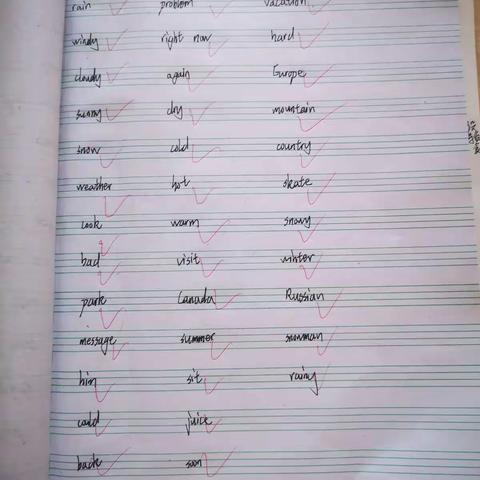 rain problem vacation
windy right now hard
cloudy again Europe
sunny dry mountain
snow cold country
weather hot skate
cook warm snowy
bad visit winter
park Canada Russian
message summer snowman
him sit rainy
could juice
back soon